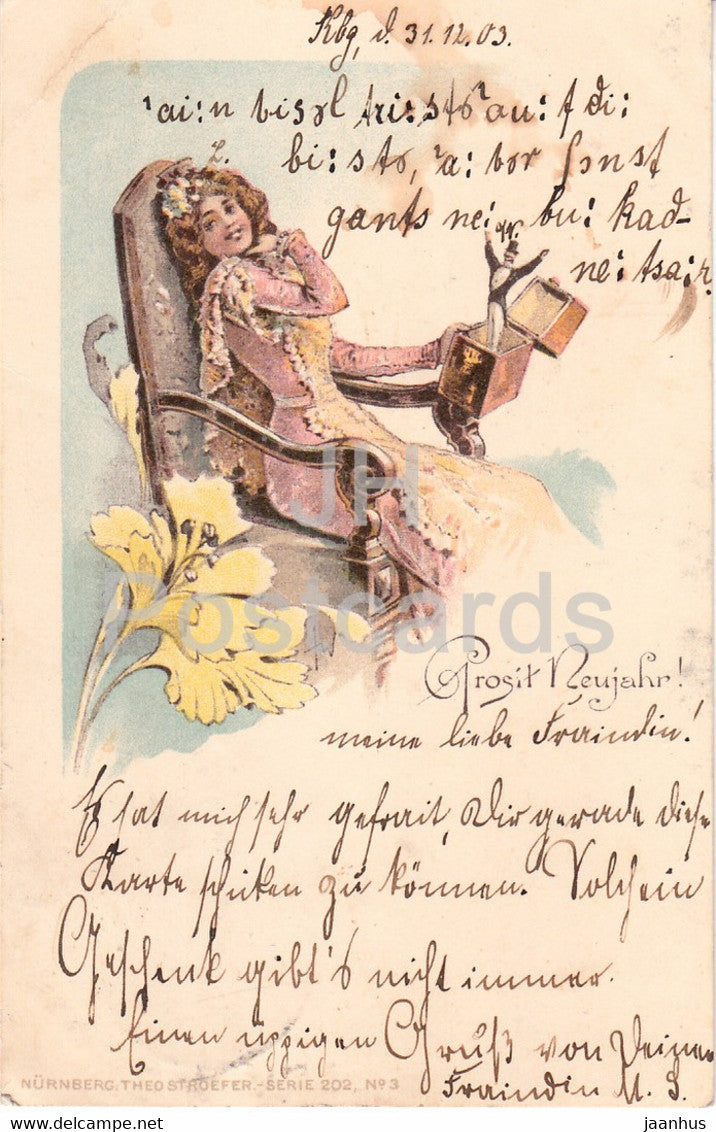 Kbg, d. 31.12.03.
'ai:n bisəl tri:stə 'au:f di:
L. bi:stə, 'a:bər sonst
gants ne: bu: kad-
W.
ne: tsa:r.
JH
Postcards
Prosit Neujahr!
meine liebe Fraindin!
Es hat mich sehr gefrait, Dir gerade diese
Karte schicken zu können. Solch ein
Geschenk gibt's nicht immer.
Einen üppigen Gruß von Deiner
Fraindin M. S.
NÜRNBERG. THEO STROEFER.-SERIE 202, No 3
jaanhus